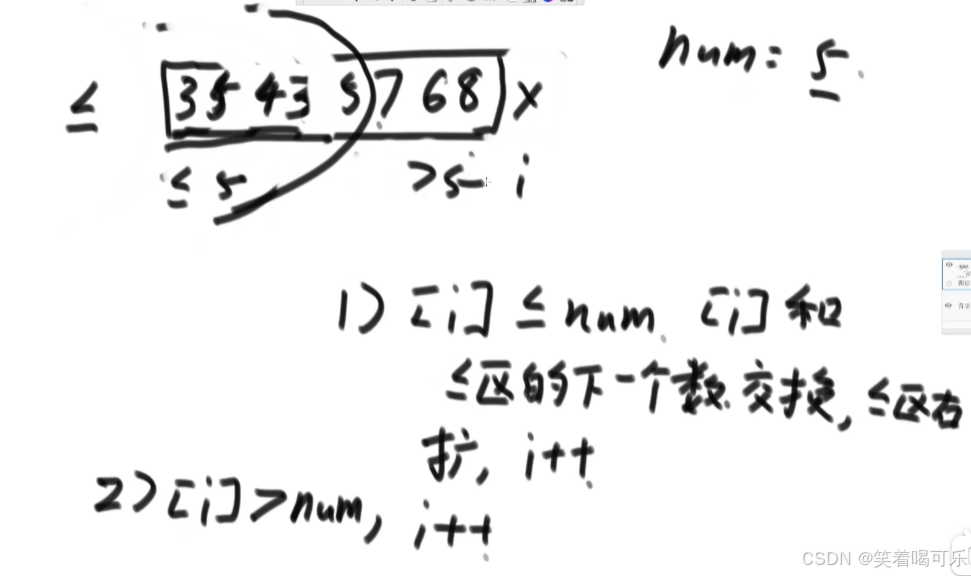 num: 5
≤ 3 5 4 3 5 7 6 8 x
≤ 5 >5 i
1) [i] ≤ num. [i]和
≤区的下一个数.交换, ≤区右
扩, i++
2) [i] > num, i++
CSDN @笑着喝可乐